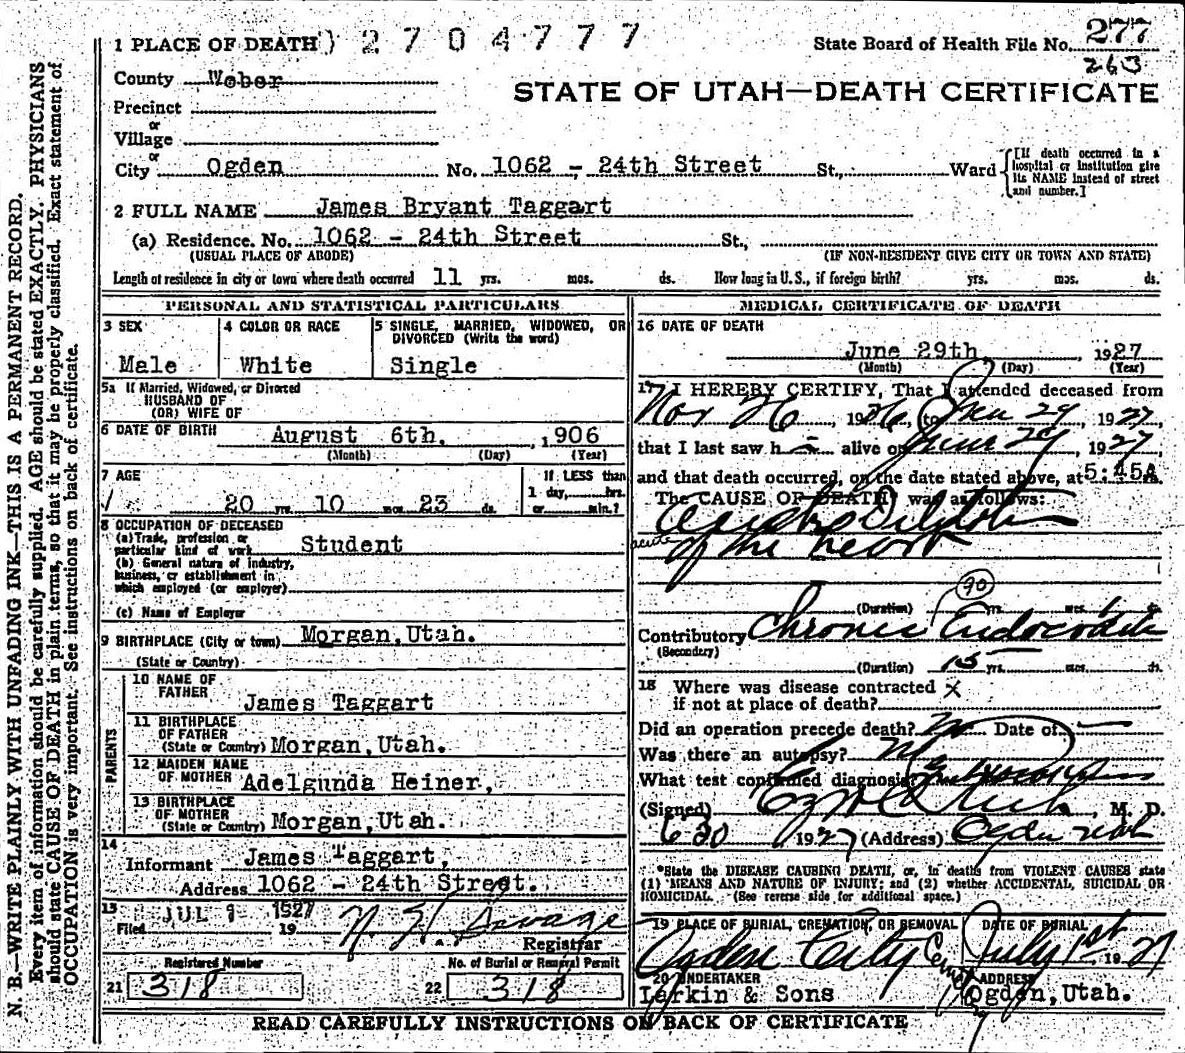 1 PLACE OF DEATH) 2 7 0 4 7 7 7
State Board of Health File No. 277
263
County Weber
STATE OF UTAH—DEATH CERTIFICATE
Precinct
or
Village
or
City Ogden No. 1062 - 24th Street St., Ward
[If death occurred in a hospital or institution give its NAME instead of street and number.]
2 FULL NAME James Bryant Taggart
(a) Residence. No. 1062 - 24th Street St.,
(USUAL PLACE OF ABODE) (IF NON-RESIDENT GIVE CITY OR TOWN AND STATE)
Length of residence in city or town where death occurred 11 yrs. mos. ds. How long in U.S., if foreign birth? yrs. mos. ds.
PERSONAL AND STATISTICAL PARTICULARS
3 SEX
Male
4 COLOR OR RACE
White
5 SINGLE, MARRIED, WIDOWED, OR
DIVORCED (Write the word)
Single
5a If Married, Widowed, or Divorced
HUSBAND OF
(OR) WIFE OF
6 DATE OF BIRTH August 6th. , 1906
(Month) (Day) (Year)
7 AGE
20 yrs. 10 mos. 23 ds.
If LESS than
1 day, hrs.
or min.?
8 OCCUPATION OF DECEASED
(a) Trade, profession or
particular kind of work Student
(b) General nature of industry,
business, or establishment in
which employed (or employer)
(c) Name of Employer
9 BIRTHPLACE (City or town) Morgan, Utah.
(State or Country)
PARENTS
10 NAME OF
FATHER James Taggart
11 BIRTHPLACE
OF FATHER
(State or Country) Morgan, Utah.
12 MAIDEN NAME
OF MOTHER Adelgunda Heiner,
13 BIRTHPLACE
OF MOTHER
(State or Country) Morgan, Utah.
14
Informant James Taggart,
Address 1062 - 24th Street.
15
Filed JUL 1927 19
Registrar
Registered Number
21 318
No. of Burial or Removal Permit
22 318
MEDICAL CERTIFICATE OF DEATH
16 DATE OF DEATH
June 29th , 1927
(Month) (Day) (Year)
17 I HEREBY CERTIFY, That I attended deceased from
Nov 26, 1926, to June 29 1927
that I last saw h alive on June 29, 1927,
and that death occurred, on the date stated above, at 5:45A m.
The CAUSE OF DEATH* was as follows:
acute Dilation
of the heart
90
(Duration) yrs. mos. ds.
Contributory Chronic Endocarditis
(Secondary)
(Duration) 15 yrs. mos. ds.
18 Where was disease contracted X
if not at place of death?
Did an operation precede death? No Date of
Was there an autopsy? No
What test confirmed diagnosis?
(Signed) , M. D.
6 30 1927 (Address) Ogden Utah
*State the DISEASE CAUSING DEATH, or, in deaths from VIOLENT CAUSES state
(1) MEANS AND NATURE OF INJURY; and (2) whether ACCIDENTAL, SUICIDAL OR
HOMICIDAL. (See reverse side for additional space.)
19 PLACE OF BURIAL, CREMATION, OR REMOVAL
Ogden City Cem
DATE OF BURIAL
July 1st 1927
20 UNDERTAKER
Larkin & Sons
ADDRESS
Ogden, Utah.
READ CAREFULLY INSTRUCTIONS ON BACK OF CERTIFICATE
N. B.—WRITE PLAINLY WITH UNFADING INK—THIS IS A PERMANENT RECORD.
Every item of information should be carefully supplied. AGE should be stated EXACTLY. PHYSICIANS
should state CAUSE OF DEATH in plain terms, so that it may be properly classified. Exact statement of
OCCUPATION is very important. See instructions on back of certificate.